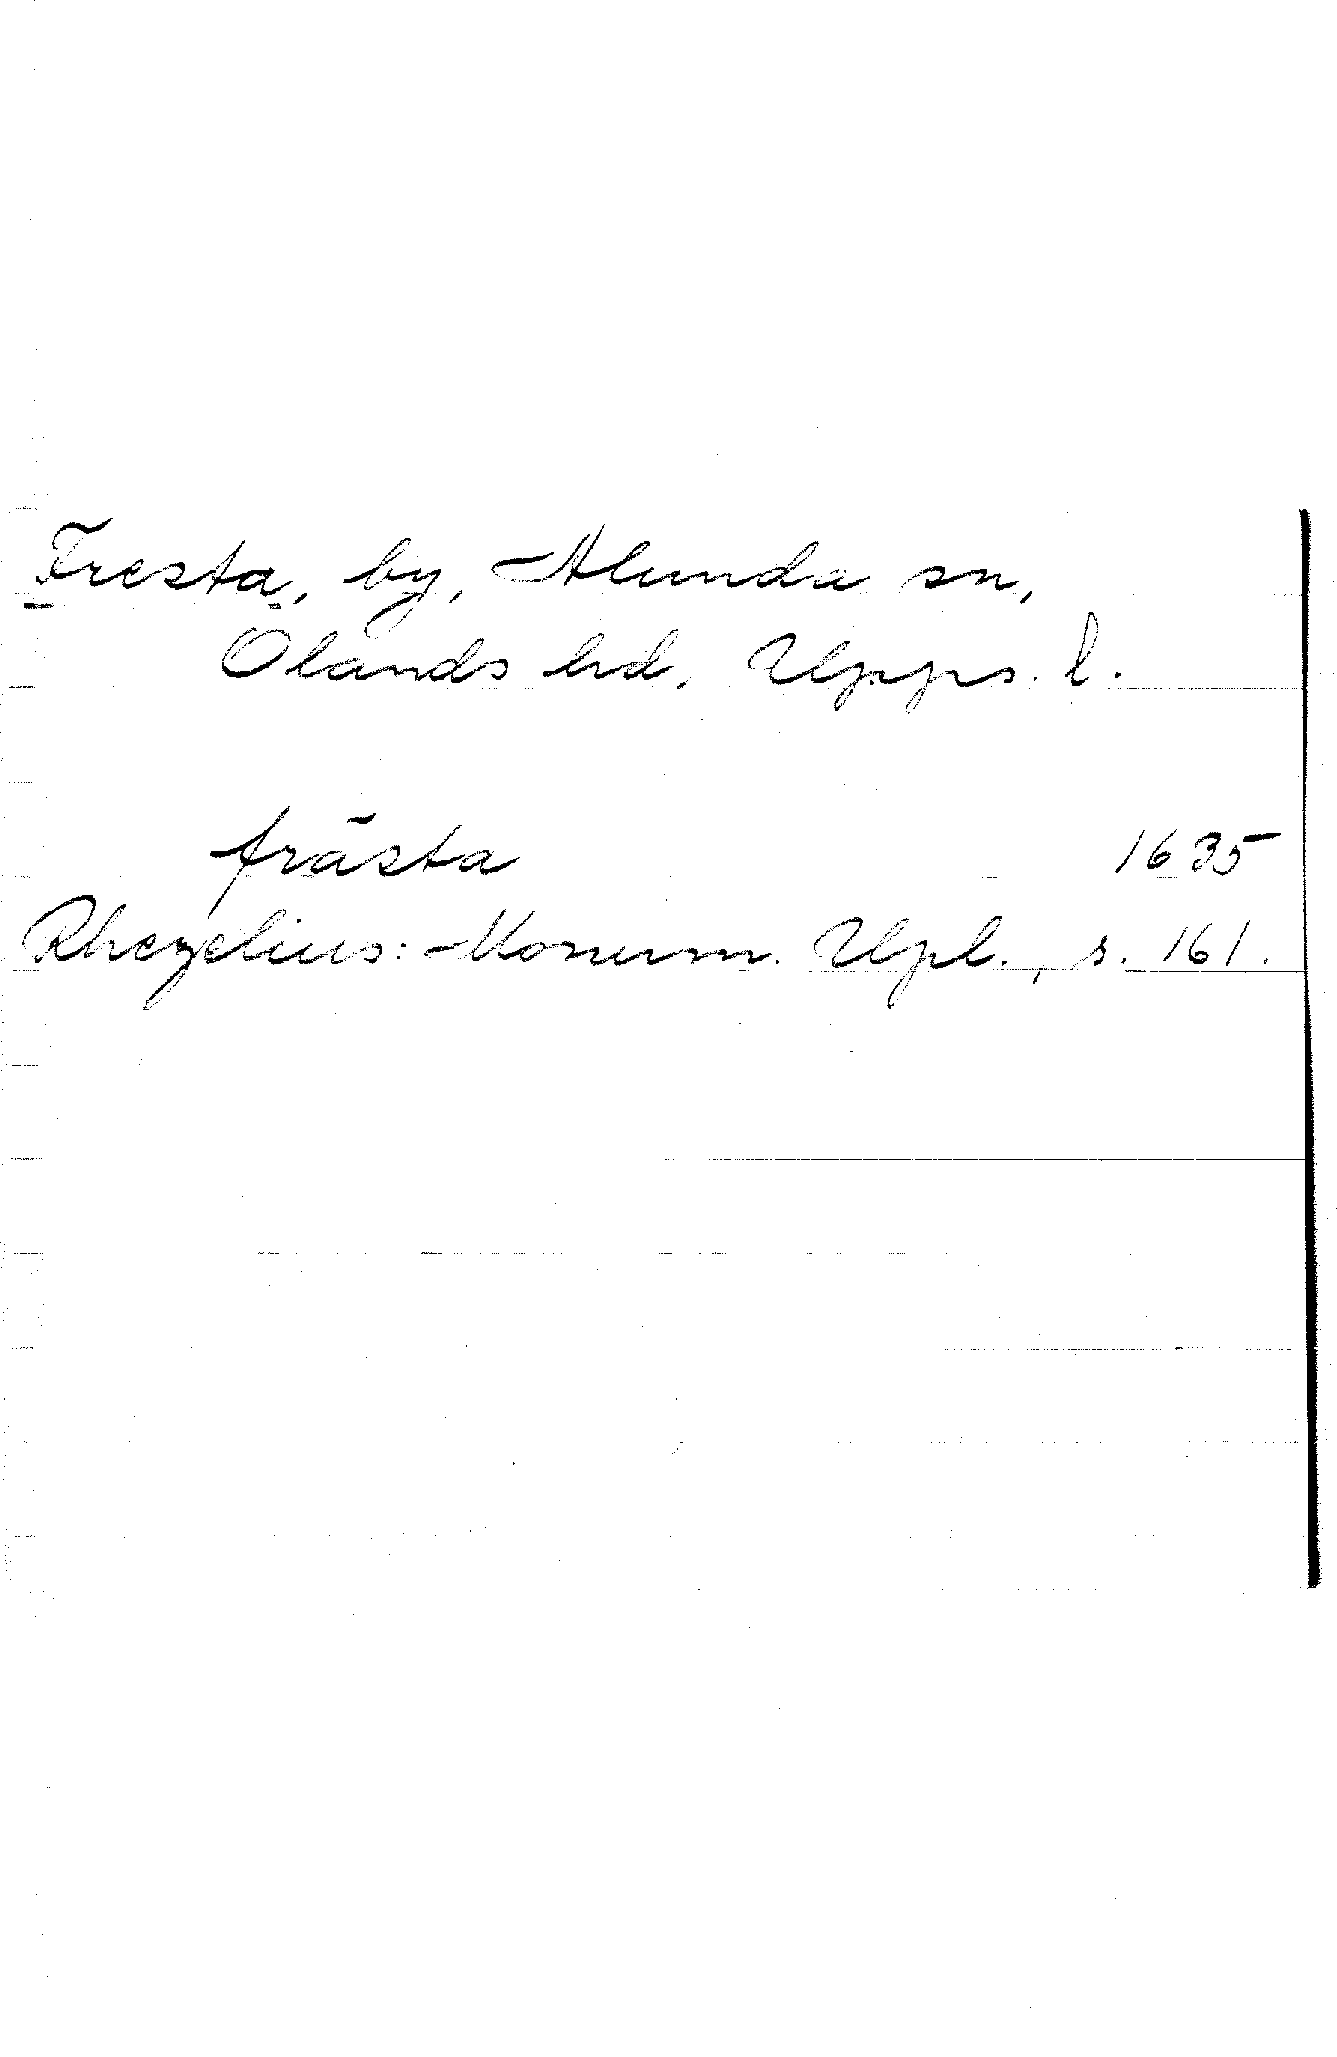 Fresta, by, Alunda sn,
Olands hd, Upps. l.
frästa 1635
Rhezelius: Monum. Upl., s. 161.